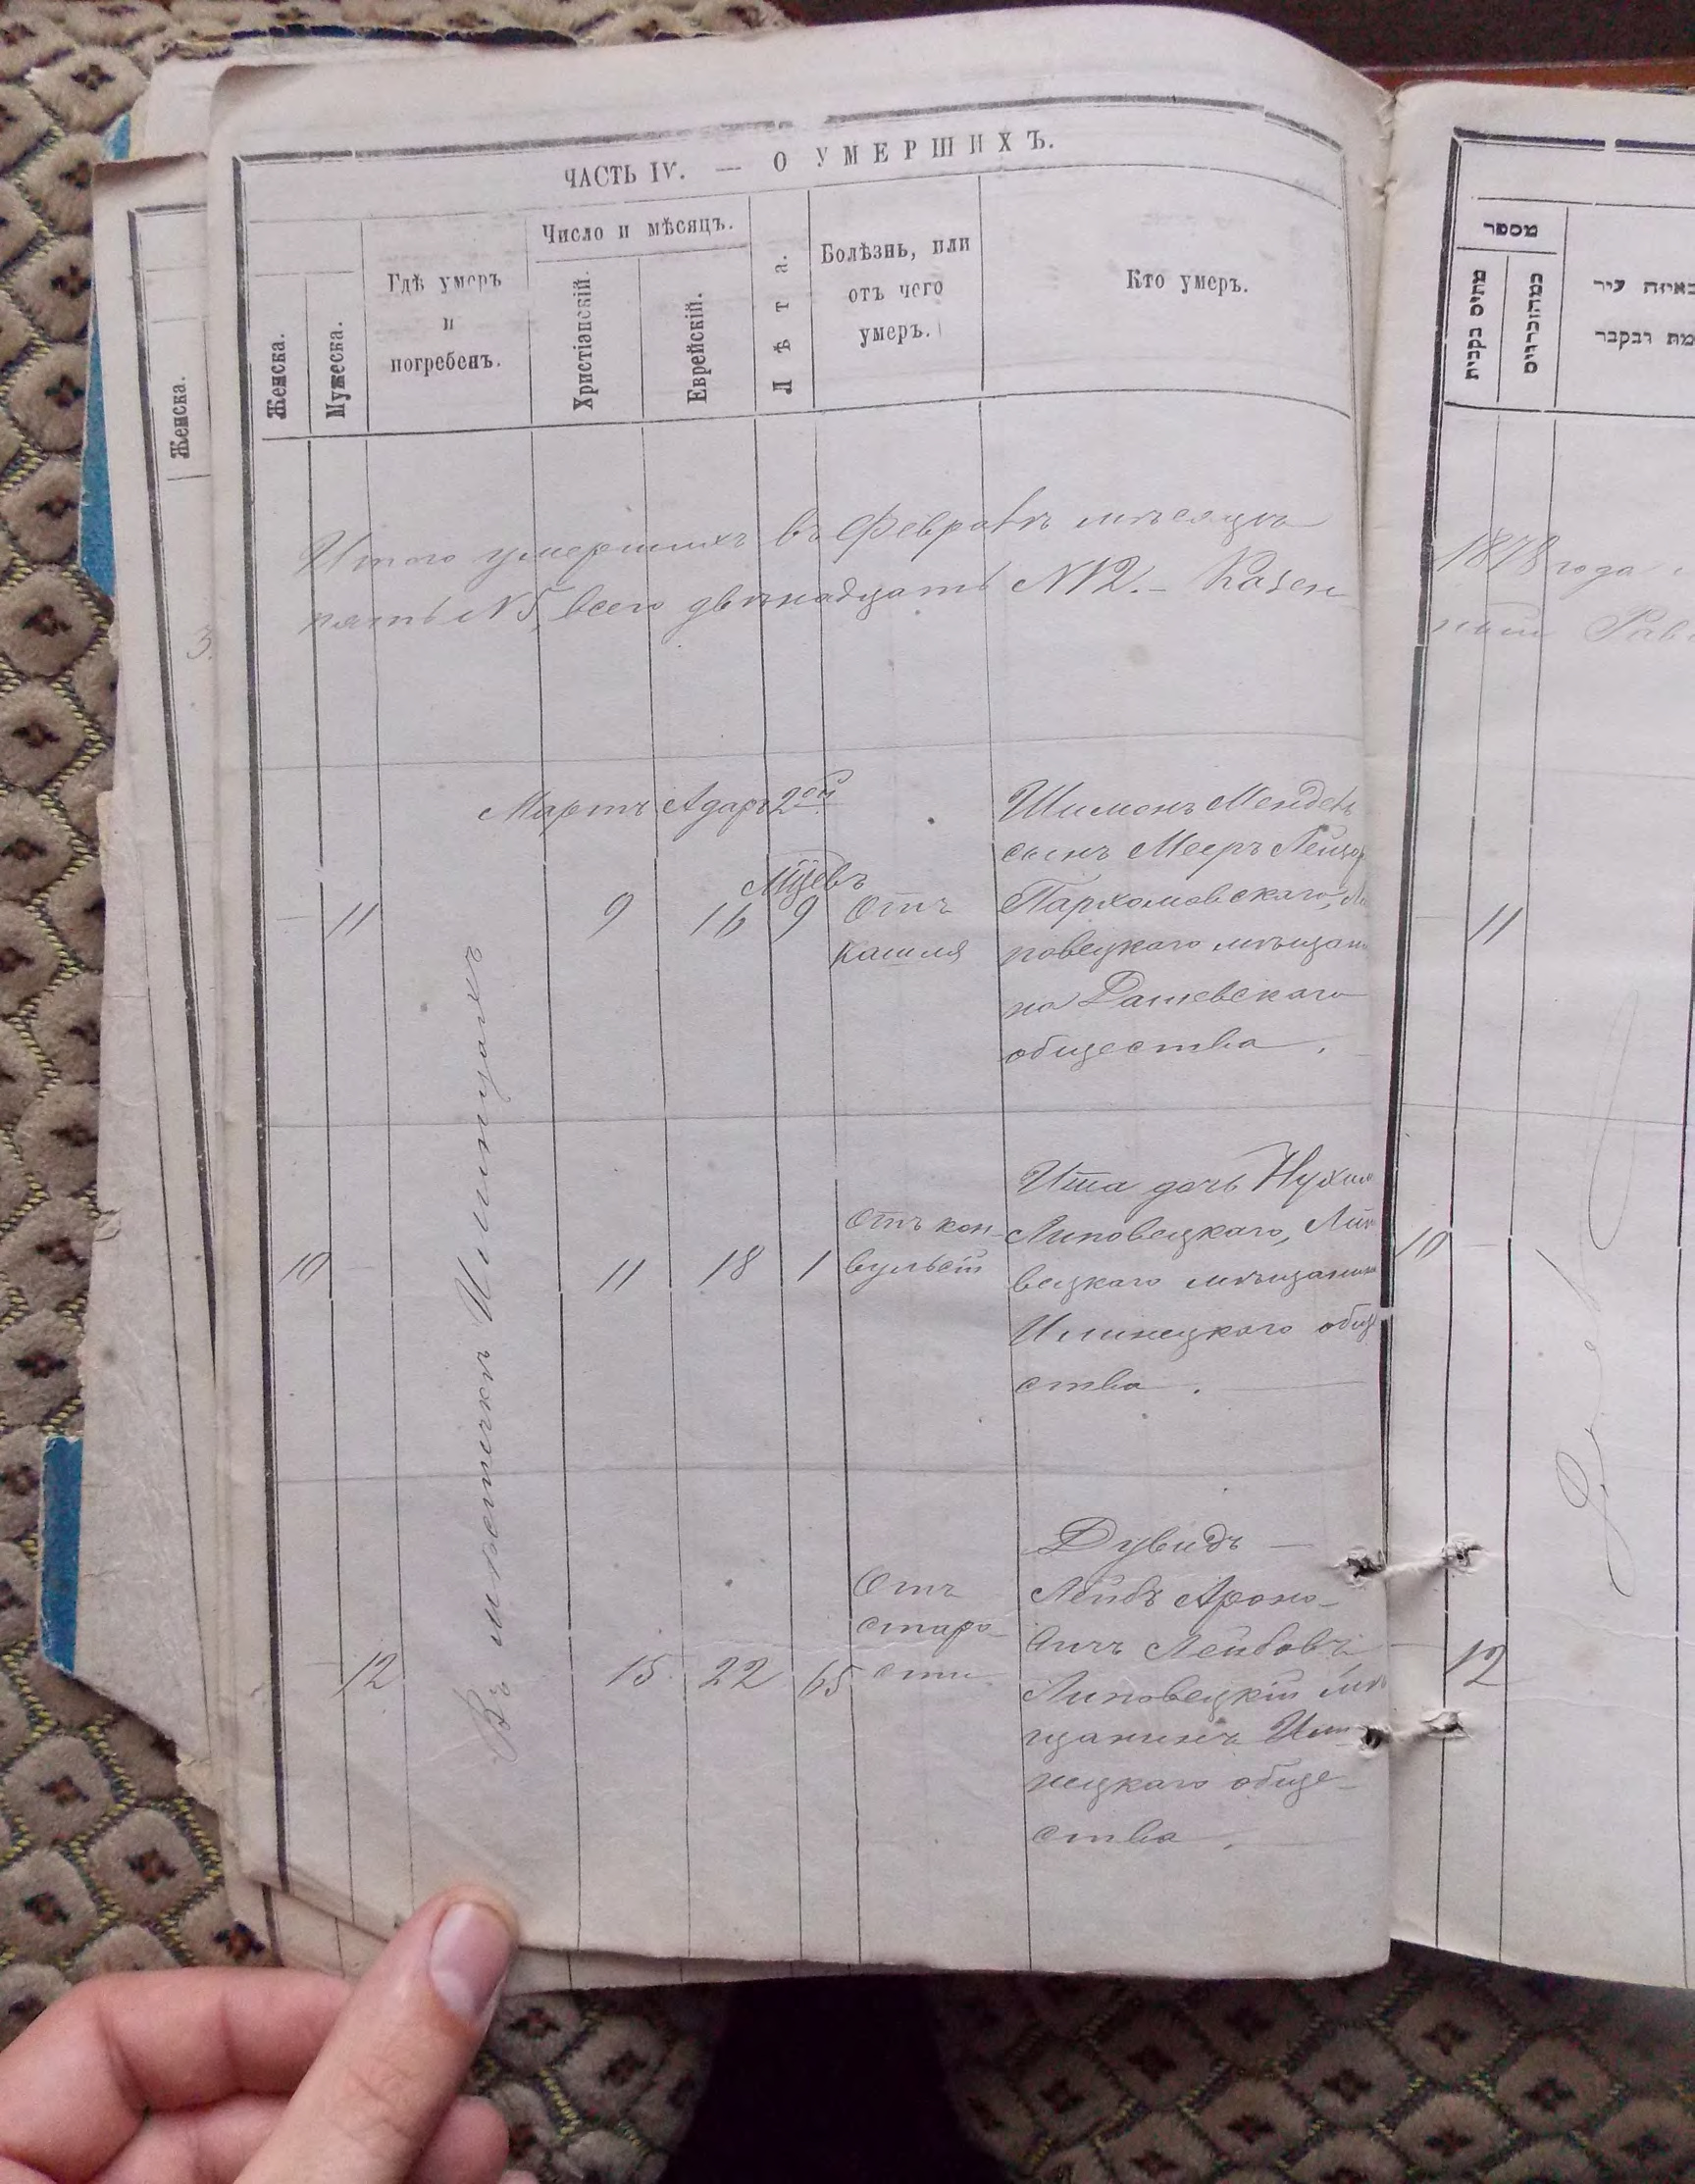 ЧАСТЬ IV. — О УМЕРШИХЪ.
Женска.
Мужеска.
Гдѣ умеръ
и
погребенъ.
Число и мѣсяцъ.
Христіанскій.
Еврейскій.
Лѣта.
Болѣзнь, или
отъ чего
умеръ.
Кто умеръ.
Женска.
3.
Итого умершихъ въ Февралѣ мѣсяцѣ
пять N 5, всего двѣнадцать N 12. – Казен
Мартъ Адаръ 2ой
Въ мѣстечкѣ Илинцахъ
11 9 16 9
Отъ
кашля
Шимонъ Мендель
сынъ Меерѣ Лейзор
Пархомовскаго, Ли
повецкаго мѣщани
на Дашевскаго
общества.
10 11 18 1
Отъ кон-
вульсій
Ита дочь Нухима
Липовецкаго, Липо
вецкаго мѣщанина
Илинецкаго обще
ства.
12 15 22 65
Отъ
старо-
сти
Дувидъ –
Лейбъ Ароно-
вичъ Лейбовъ,
Липовецкій мѣ
щанинъ Или-
нецкаго обще-
ства.
מספר
באיזה עיר
מת ונקבר
1878 года
ный Рав
11
10
12